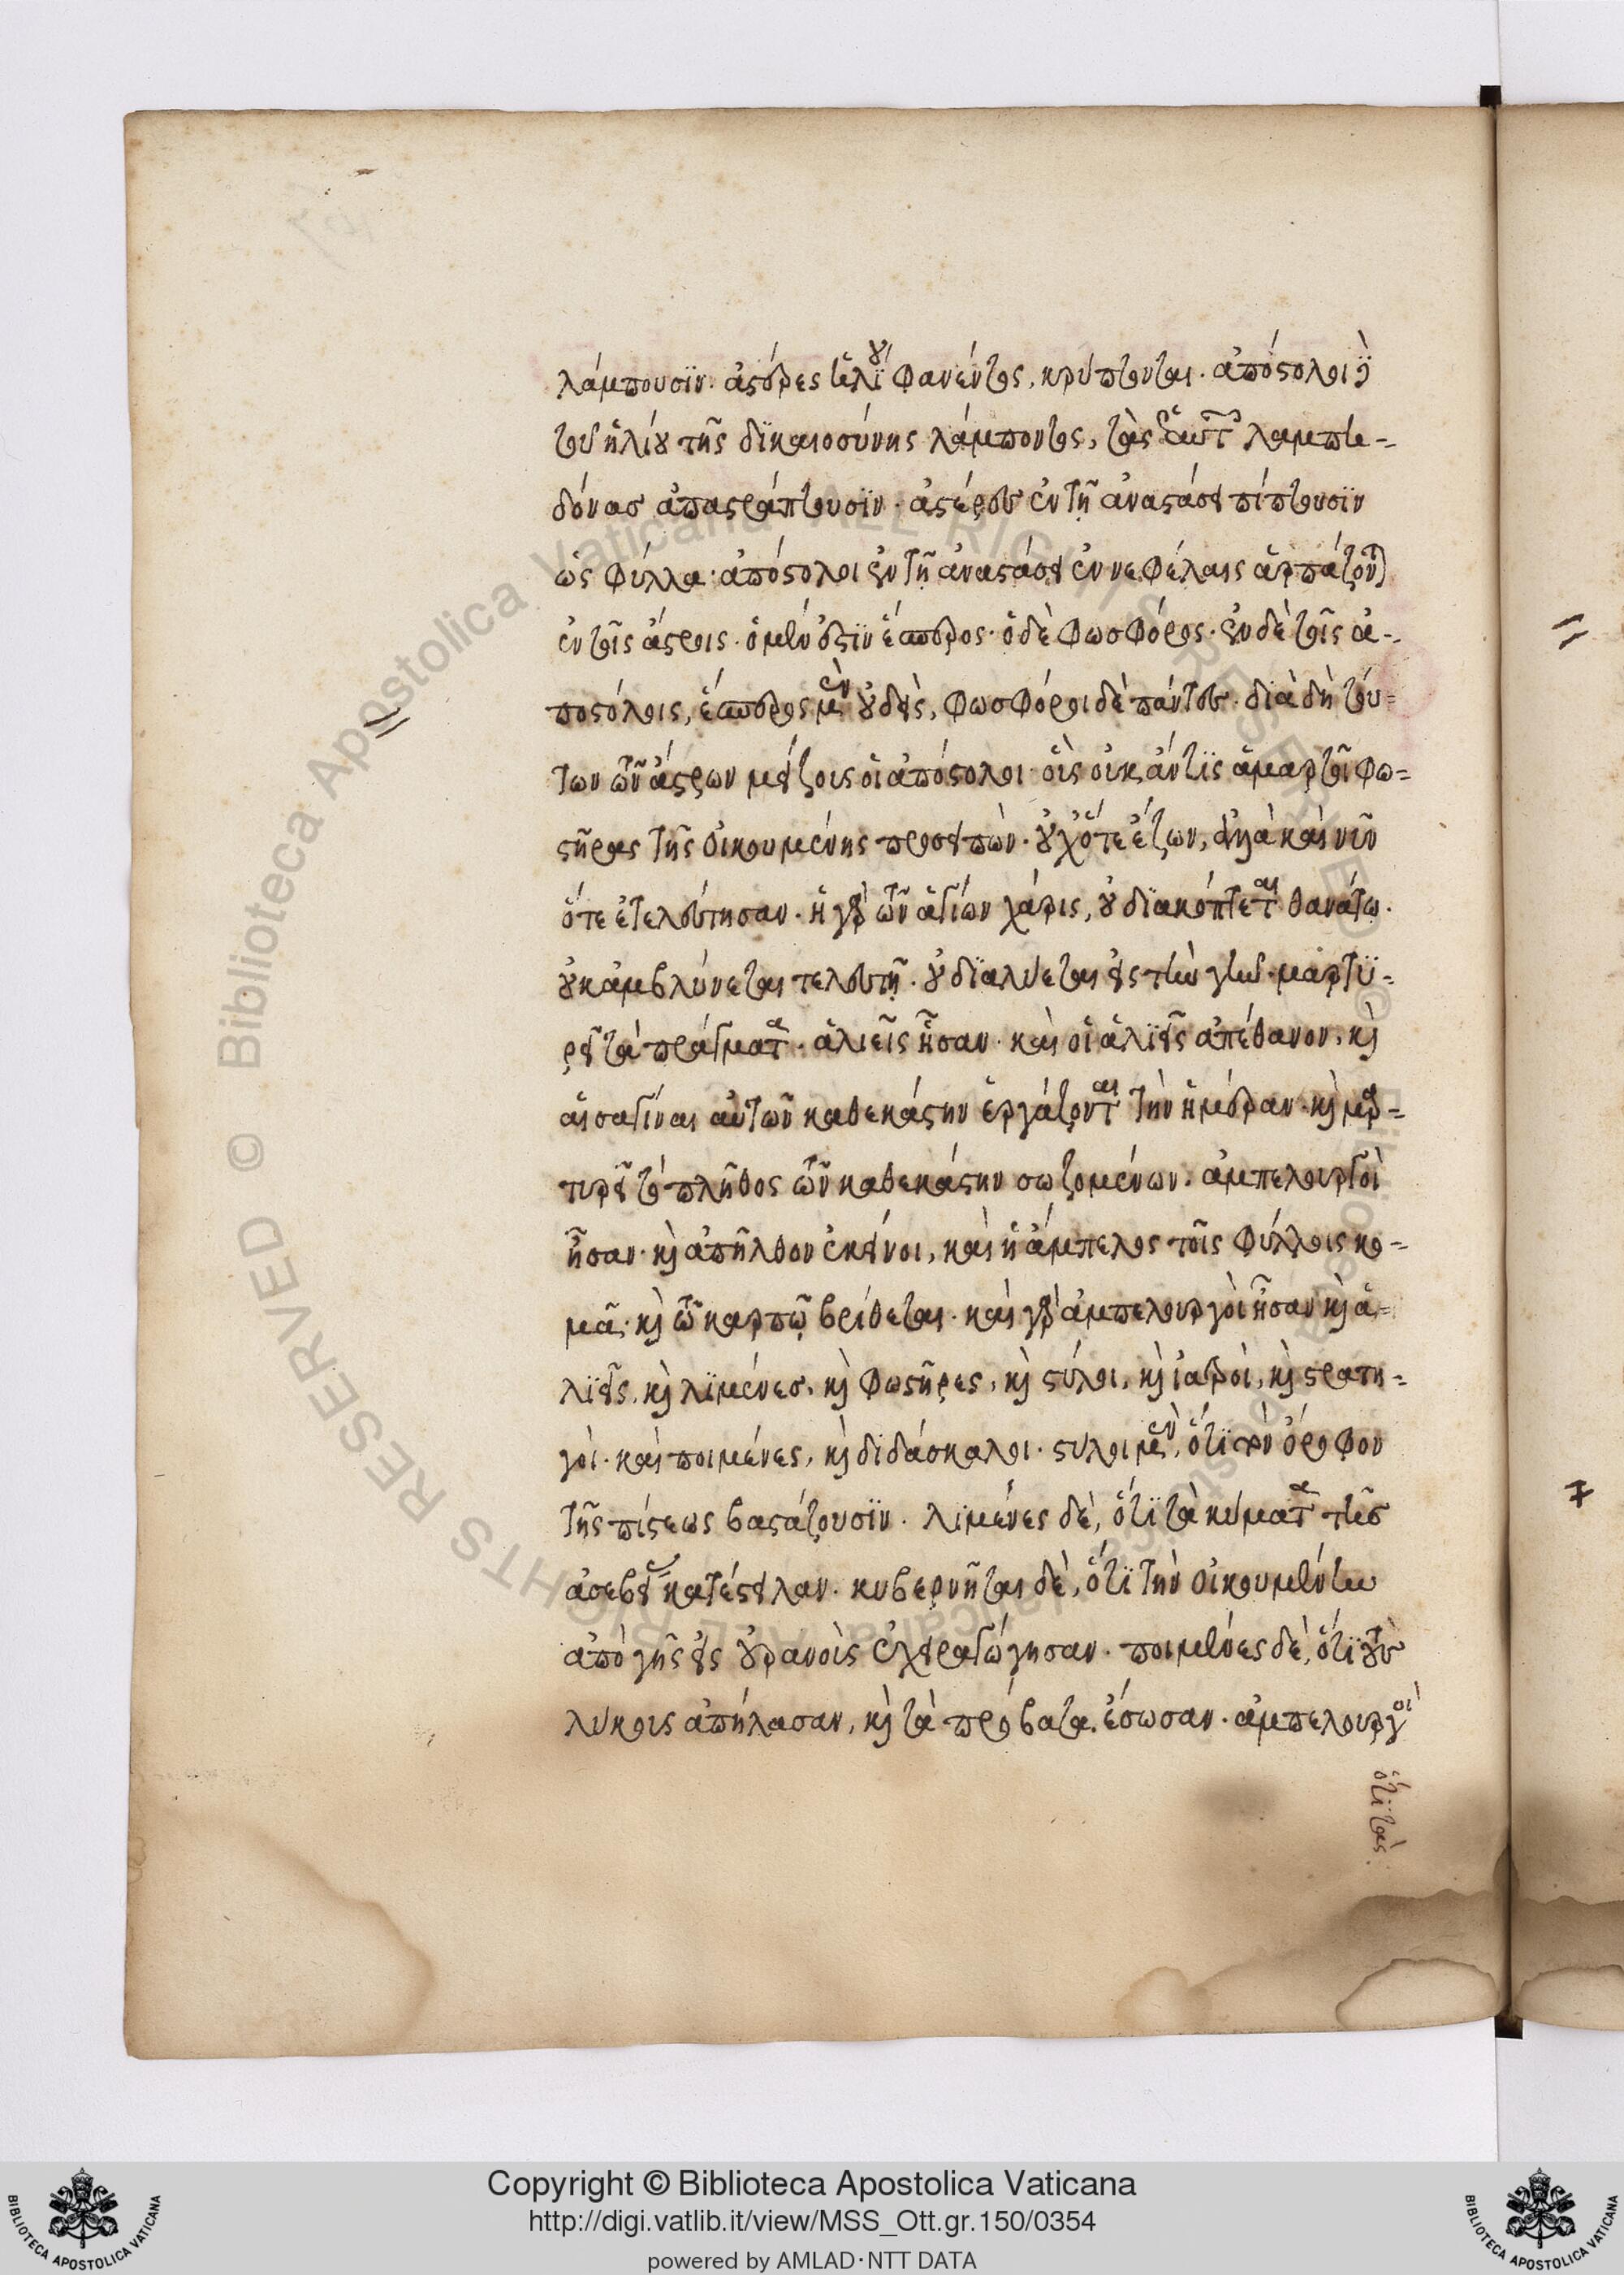 λάμπουσϊν· ἀστέρες ἡλίου φανέντος, κρύπτονται· ἀπόστολοι δὲ
τοῦ ἡλίου τῆς δϊκαιοσύνης λάμποντος, τὰς ἑαυτῶν λαμπη-
δόνας ἀπαστράπτουσϊν· ἀστέρες ἐν τῇ ἀναστάσει πίπτουσϊν
ὡς φύλλα· ἀπόστολοι ἐν τῇ ἀναστάσει ἐν νεφέλαις ἁρπάζονται
ἐν τοῖς ἄστροις· ὁ μέν ἐστϊν ἕσπερος· ὁ δὲ φωσφόρος· ἐν δὲ τοῖς ἀ-
ποστόλοις, ἕσπερος μὲν οὐδεὶς, φωσφόροι δὲ πάντες· δϊὰ δὴ τού-
των τῶν ἄστρων μείζοις οἱ ἀπόστολοι· οἷς οὐκ ἄν τϊς ἁμάρτοι φω-
στῆρας τῆς οἰκουμένης προσειπὼν· οὐχ ὅτε ἔζων, ἀλλὰ καὶ νῦν
ὅτε ἐτελεύτησαν· ἡ γὰρ τῶν ἁγίων χάρις, οὐ δϊακόπτεται θανάτω·
οὐκ ἀμβλύνεται τελευτῇ· οὐ δϊαλύεται εἰς τὴν γῆν· μαρτϋ-
ρεῖ τὰ πράγματα· ἁλιεῖς ἦσαν· καὶ οἱ ἁλϊεῖς ἀπέθανον, καὶ
αἱ σαγίναι αὐτῶν καθεκάστην ἐργάζονται τὴν ἡμέραν· καὶ μαρ-
τυρεῖ τὸ πλῆθος τῶν καθεκάστην σωζομένων· ἀμπελουργοὶ
ἦσαν· καὶ ἀπῆλθον ἐκεῖνοι, καὶ ἡ ἄμπελος τοῖς φύλλοις κο-
μᾶ· καὶ τῶ καρπῷ βρίθεται· καὶ γὰρ ἀμπελουργοὶ ἦσαν καὶ ἁ-
λϊεῖς, καὶ λϊμένες, καὶ φωστῆρες, καὶ στύλοι, καὶ ἰατροὶ, καὶ στρατη-
γοὶ· καὶ ποιμένες, καὶ δϊδάσκαλοι· στύλοι μὲν, ὅτϊ τὸν ὄροφον
τῆς πίστεως βαστάζουσϊν· λϊμένες δὲ, ὅτϊ τὰ κύματα τῆς
ἀσεβείας κατέστειλαν· κυβερνῆται δὲ, ὅτϊ τὴν οἰκουμένην
ἀπὸ γῆς εἰς οὐρανοὺς ἐχειραγώγησαν· ποιμένες δὲ, ὅτϊ τοὺς
λύκους ἀπήλασαν, καὶ τὰ πρόβατα ἔσωσαν· ἀμπελουργοὶ
ὅτϊ τὰς
Copyright © Biblioteca Apostolica Vaticana
http://digi.vatlib.it/view/MSS_Ott.gr.150/0354
powered by AMLAD·NTT DATA